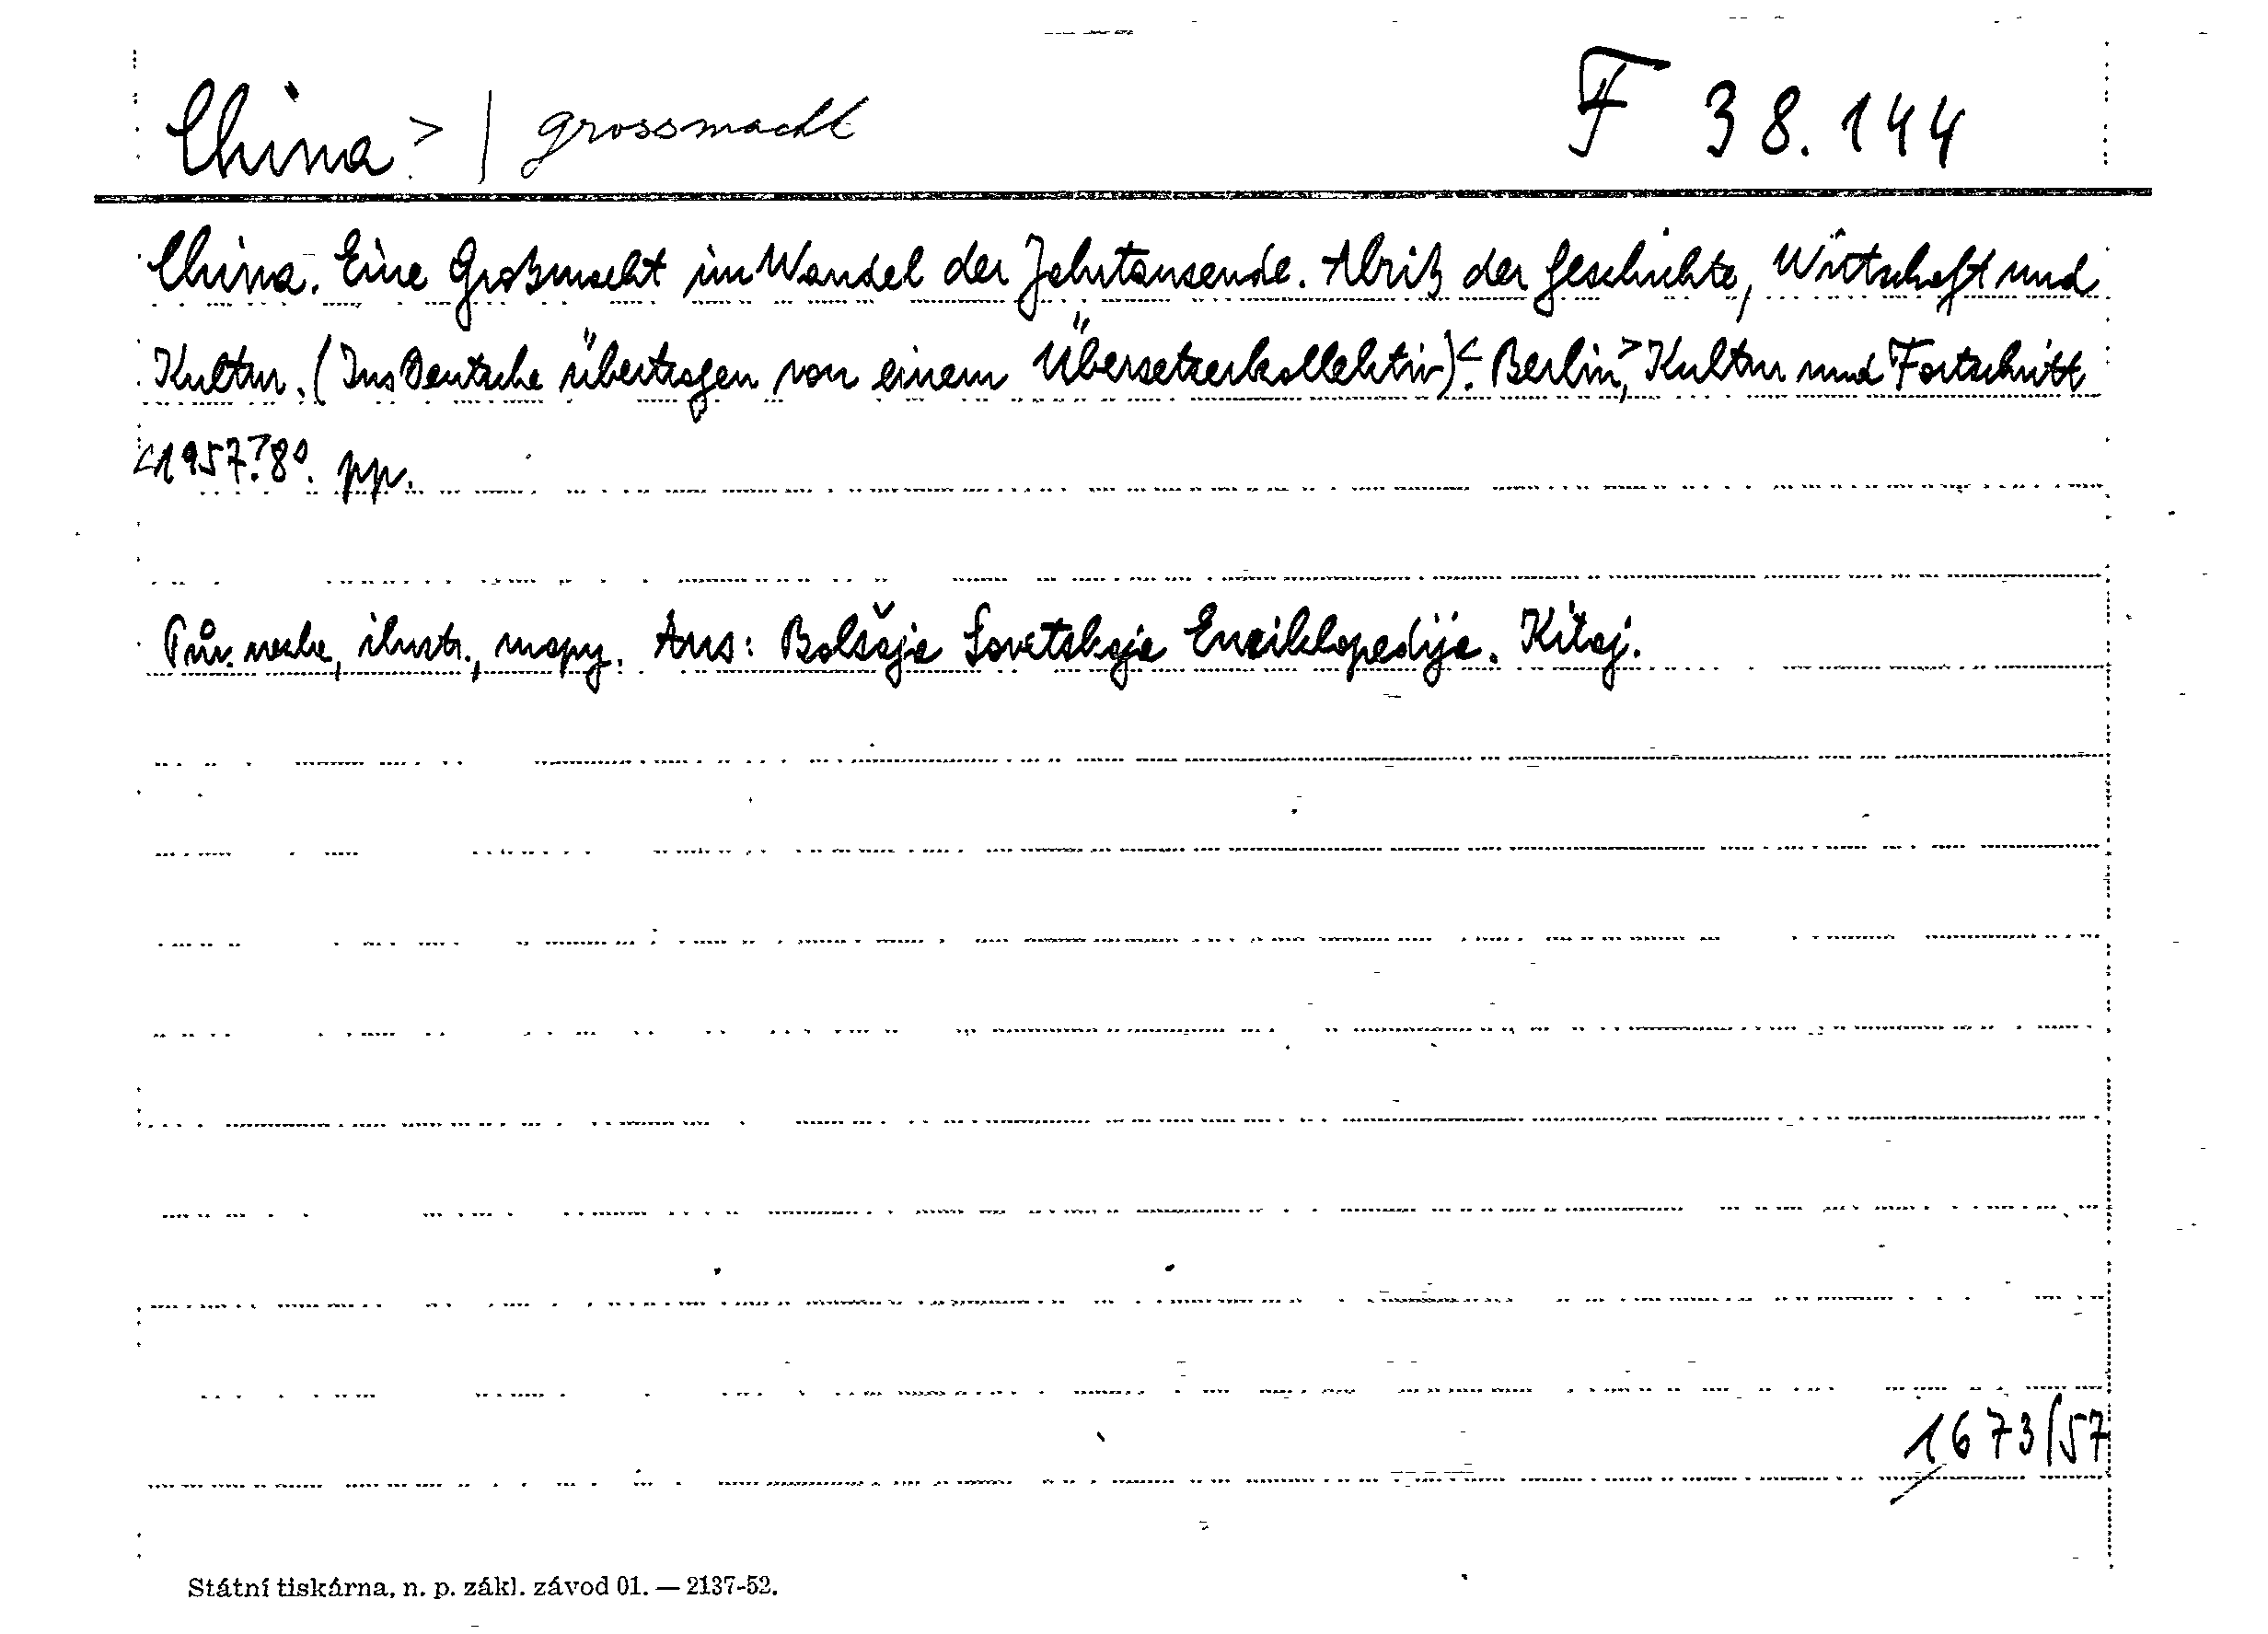 China > | grossmacht F 38.144
China. Eine Großmacht im Wandel der Jahrtausende. Abriß der Geschichte, Wirtschaft und
Kultur. (Ins Deutsche übertragen von einem Übersetzerkollektiv)<. Berlin,> Kultur und Fortschritt
<1957.> 8°. pp.
Pův. , ilustr., mapy. Aus: Bolšaja Sovetskaja Enciklopedija. Kitaj.
1673/57
Státní tiskárna, n. p. zákl. závod 01. — 2137-52.